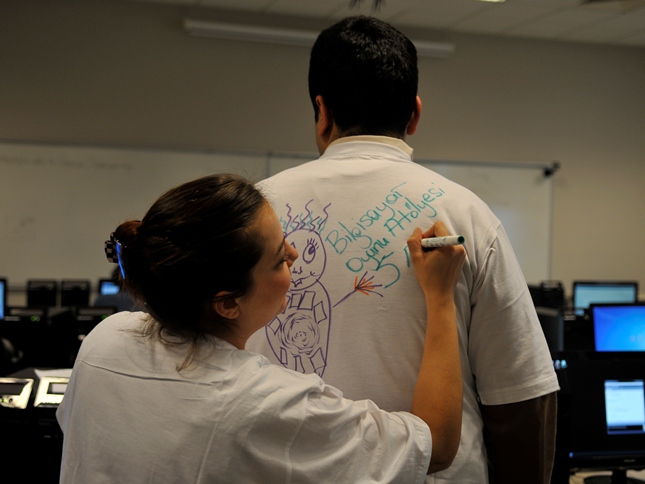 Bilgisayar
Oyunu Atölyesi
5